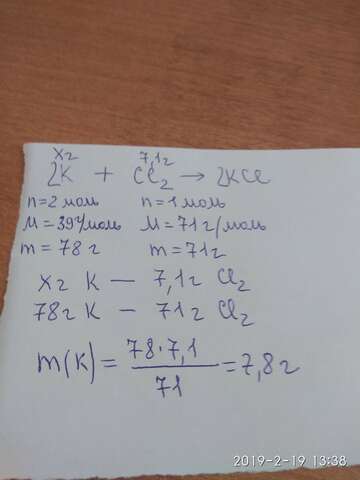 хг 7,1г
2K + Cl₂ → 2KCl
n=2 моль n=1 моль
M=39г/моль M=71г/моль
m=78 г m=71г
хг K — 7,1г Cl₂
78г K — 71г Cl₂
m(K)= 78·7,1 / 71 =7,8г
2019-2-19 13:38